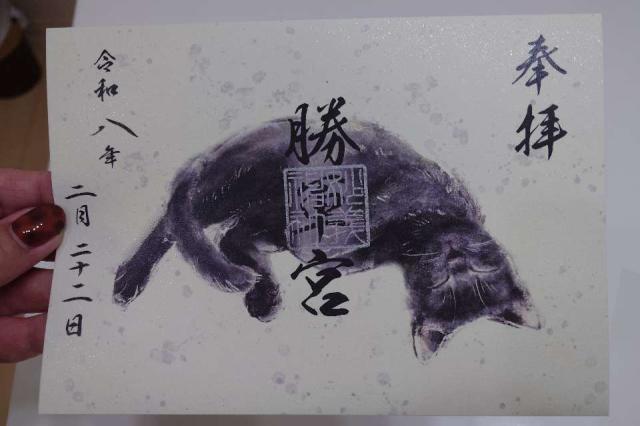 奉拝
勝宮
令和八年
二月二十二日